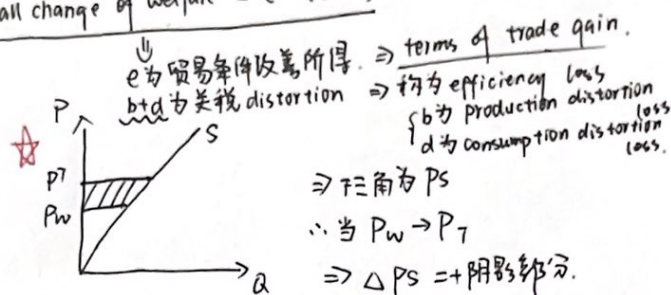 all change of welfare
⇓
e为贸易条件改善所得. ⇒ terms of trade gain.
b+d为关税distortion ⇒ 称为efficiency loss
{b为 production distortion loss
d为 consumption distortion loss.
P
S
P^T
Pw
Q
⇒ 下三角为PS
∴ 当 Pw → P_T
⇒ △PS = +阴影部分.